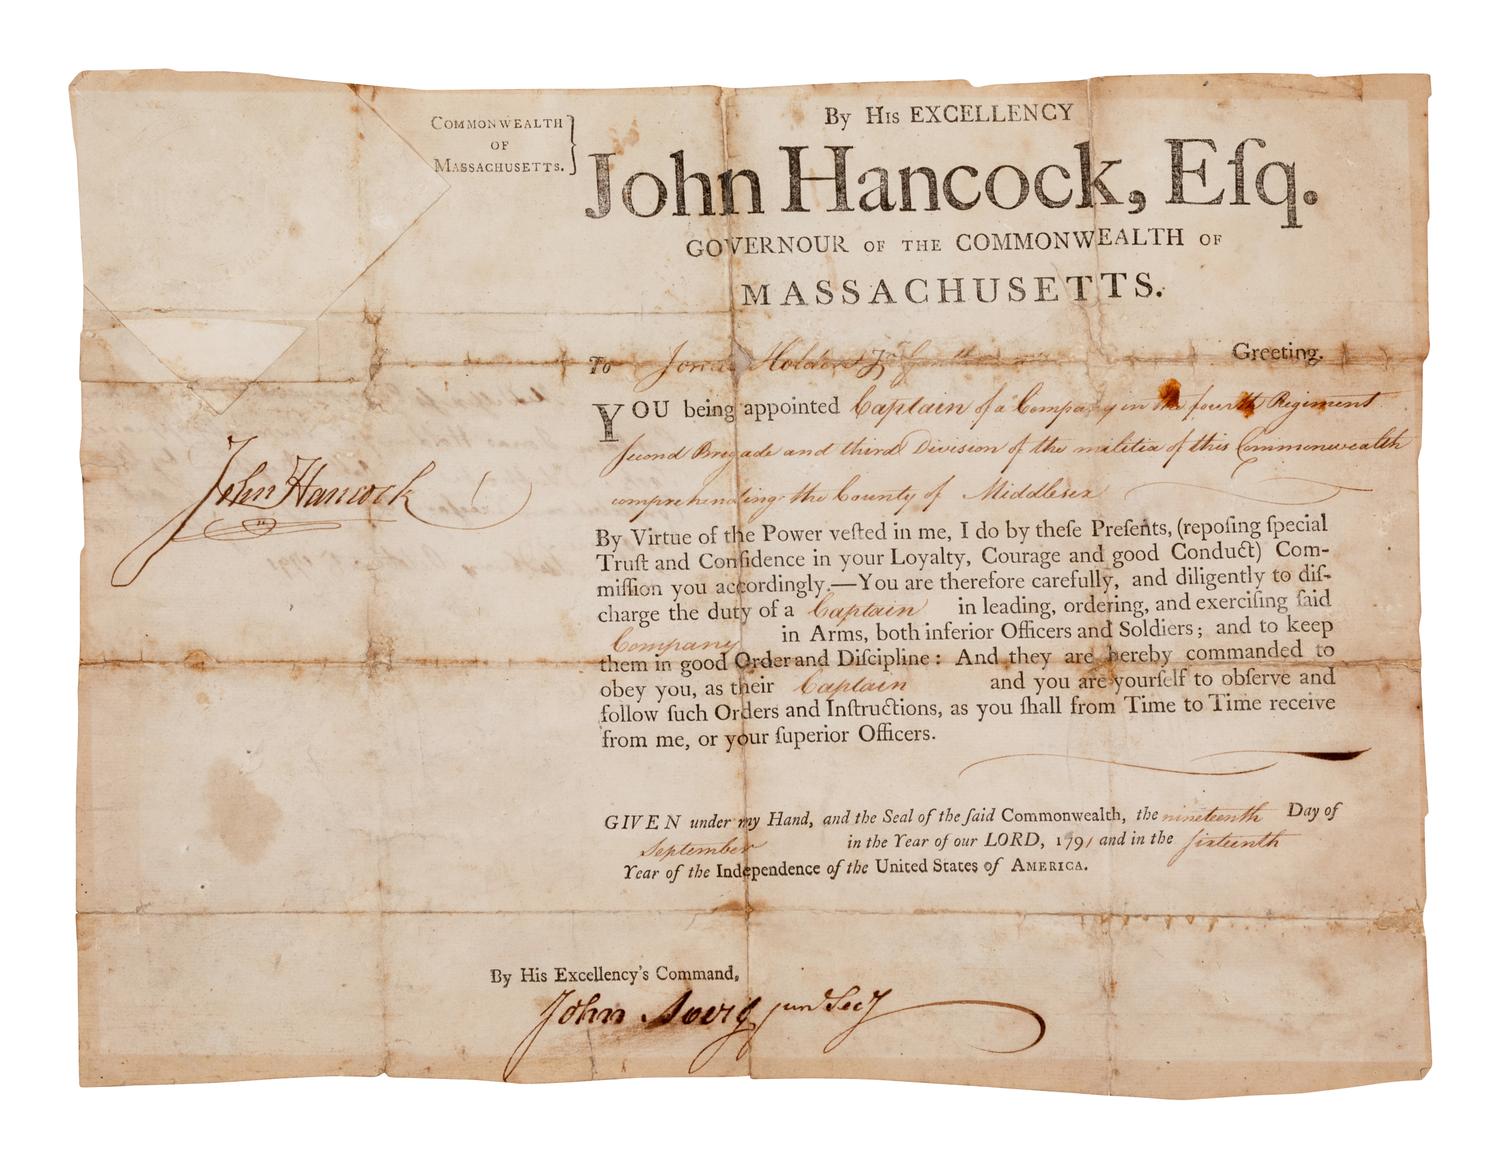 COMMONWEALTH
OF
MASSACHUSETTS.
By His EXCELLENCY
John Hancock, Eſq.
GOVERNOUR OF THE COMMONWEALTH OF
MASSACHUSETTS.
To Jonas Holden Jr. Greeting.
YOU being appointed Captain of a Company in the fourth Regiment
second Brigade and third Division of the militia of this Commonwealth
comprehending the County of Middlesex
John Hancock
By Virtue of the Power veſted in me, I do by theſe Preſents, (repoſing ſpecial
Truſt and Confidence in your Loyalty, Courage and good Conduct) Com-
miſſion you accordingly.—You are therefore carefully, and diligently to diſ-
charge the duty of a Captain in leading, ordering, and exerciſing ſaid
Company in Arms, both inferior Officers and Soldiers; and to keep
them in good Order and Diſcipline: And they are hereby commanded to
obey you, as their Captain and you are yourſelf to obſerve and
follow ſuch Orders and Inſtructions, as you ſhall from Time to Time receive
from me, or your ſuperior Officers.
GIVEN under my Hand, and the Seal of the ſaid Commonwealth, the nineteenth Day of
September in the Year of our LORD, 1791 and in the sixteenth
Year of the Independence of the United States of AMERICA.
By His Excellency's Command,
John Avery jun Secy